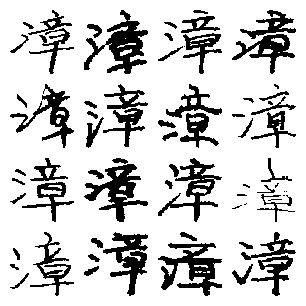 漳漳漳漳
漳漳漳漳
漳漳漳漳
漳漳漳漳